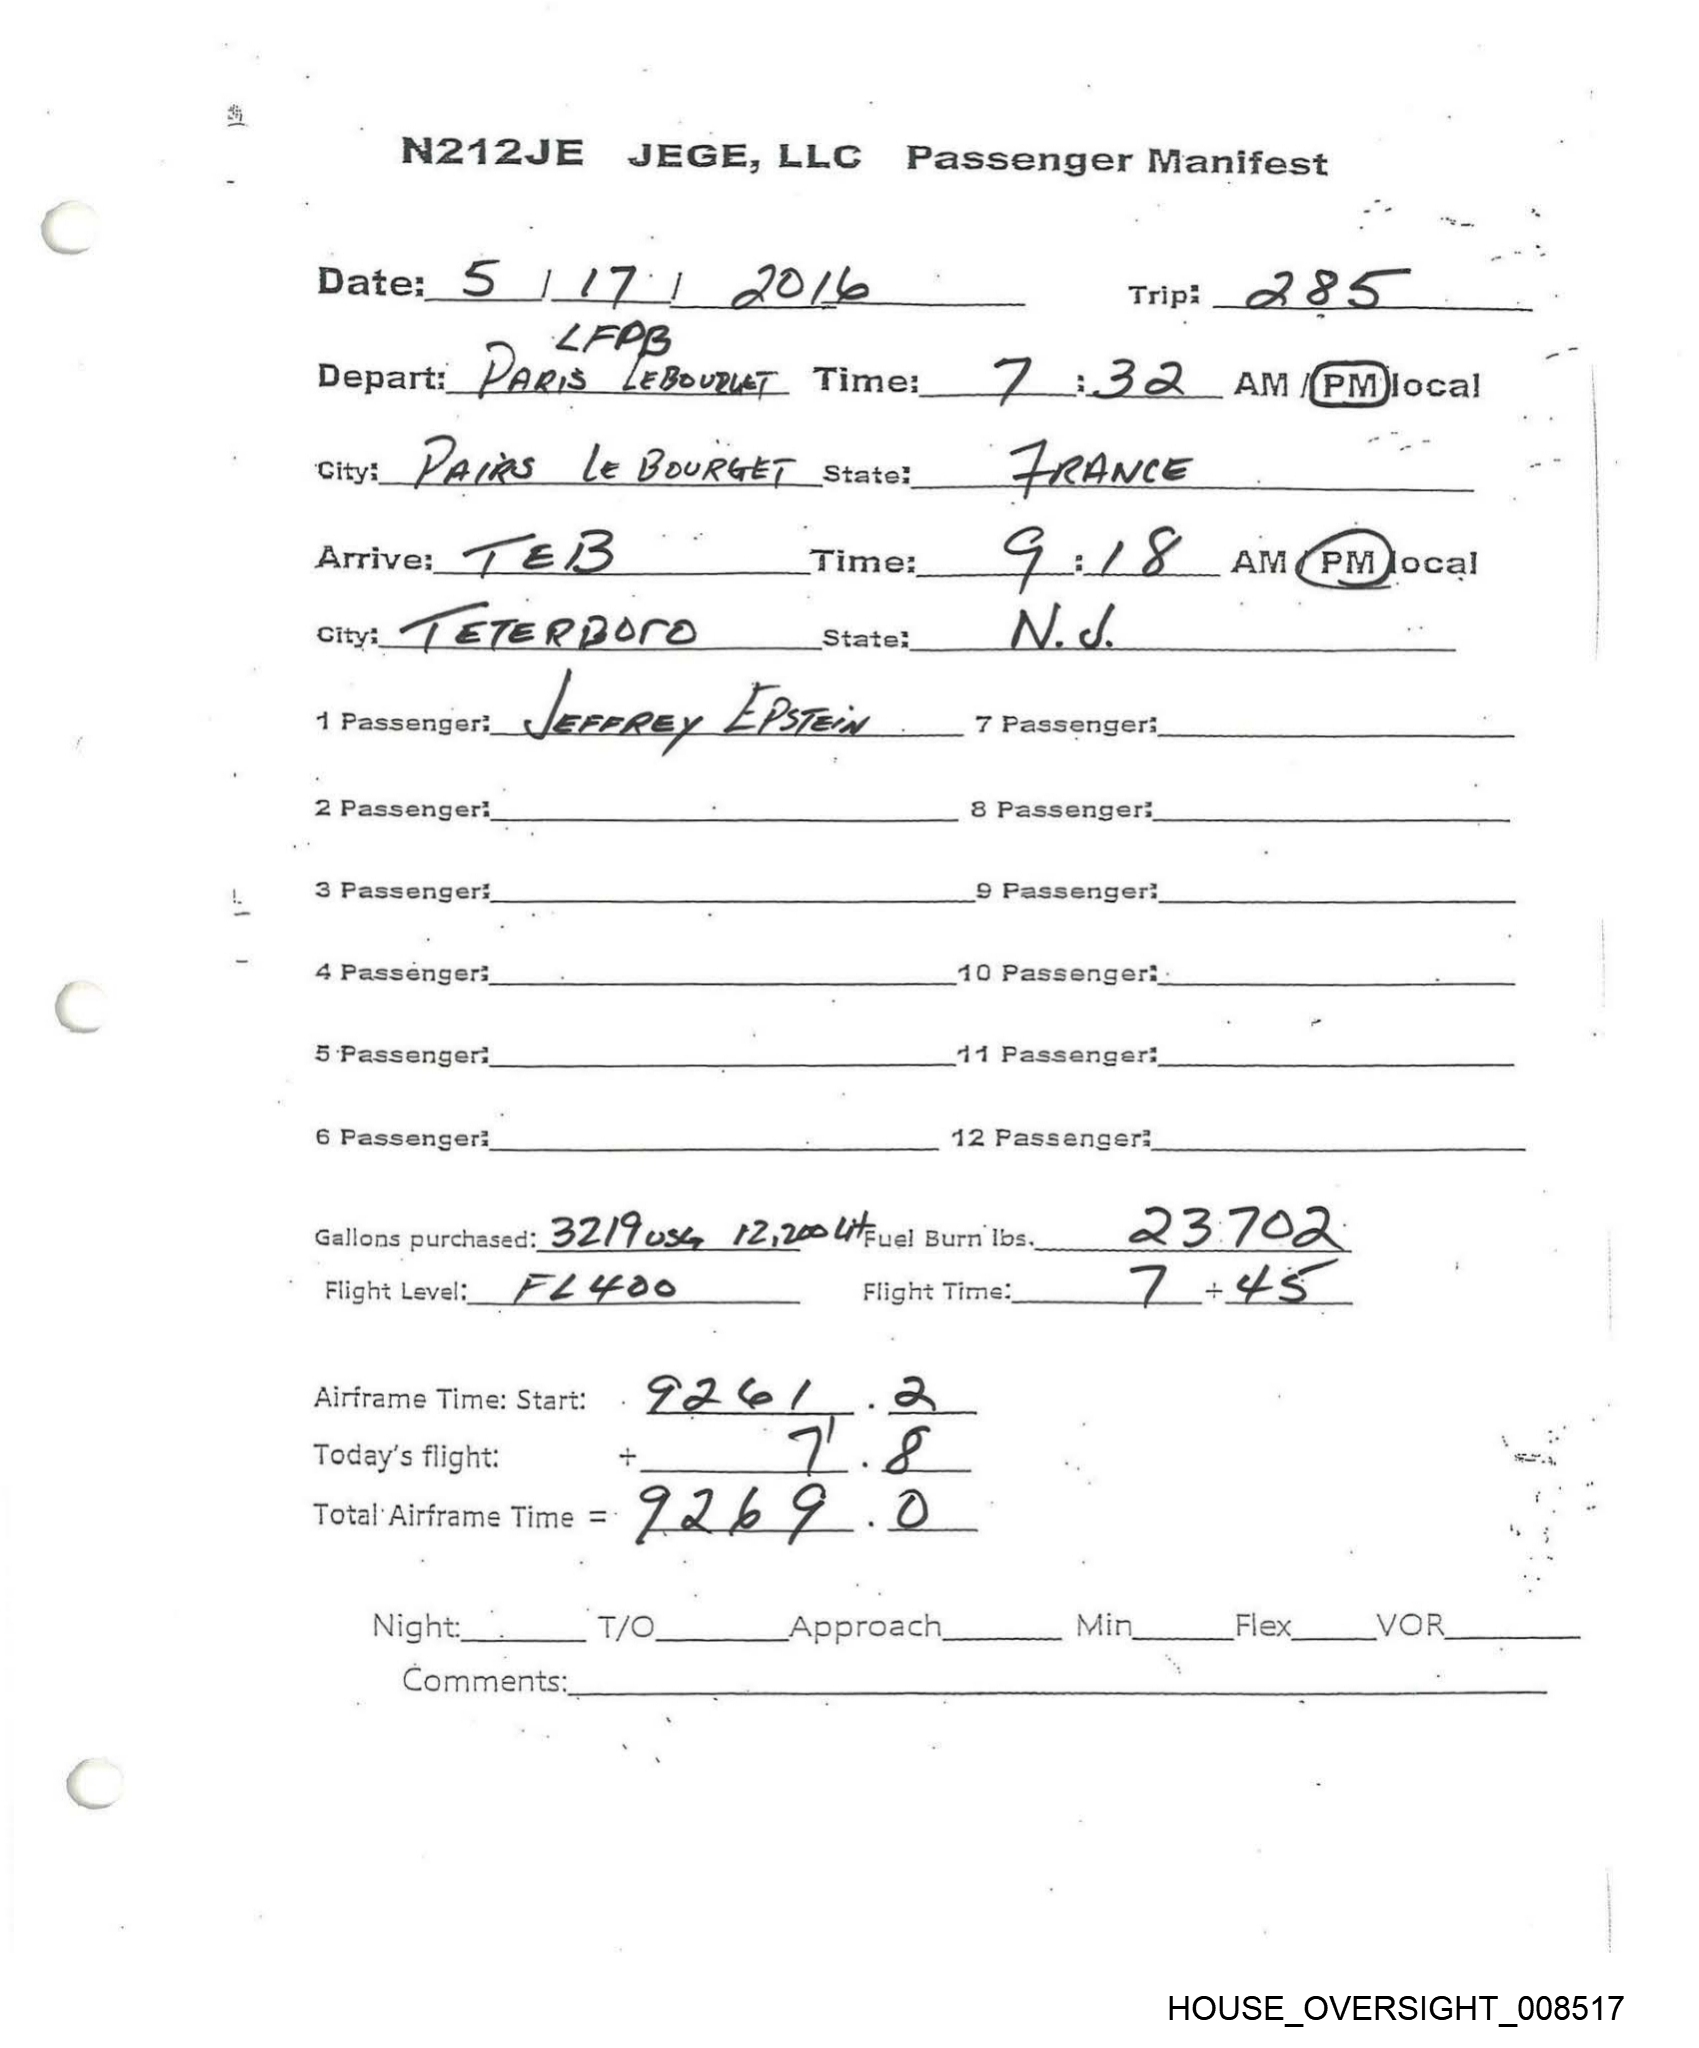 N212JE JEGE, LLC Passenger Manifest
Date: 5 / 17 / 2016 Trip: 285
LFPB
Depart: PARIS LEBOURGET Time: 7 : 32 AM / PM local
City: PAIRS LE BOURGET State: FRANCE
Arrive: TEB Time: 9 : 18 AM / PM local
City: TETERBORO State: N.J.
1 Passenger: JEFFREY EPSTEIN 7 Passenger:
2 Passenger: 8 Passenger:
3 Passenger: 9 Passenger:
4 Passenger: 10 Passenger:
5 Passenger: 11 Passenger:
6 Passenger: 12 Passenger:
Gallons purchased: 3219 USG 12,200 Lit Fuel Burn lbs. 23702
Flight Level: FL400 Flight Time: 7 + 45
Airframe Time: Start: 9261 . 2
Today's flight: + 7 . 8
Total Airframe Time = 9269 . 0
Night: T/O Approach Min Flex VOR
Comments:
HOUSE_OVERSIGHT_008517